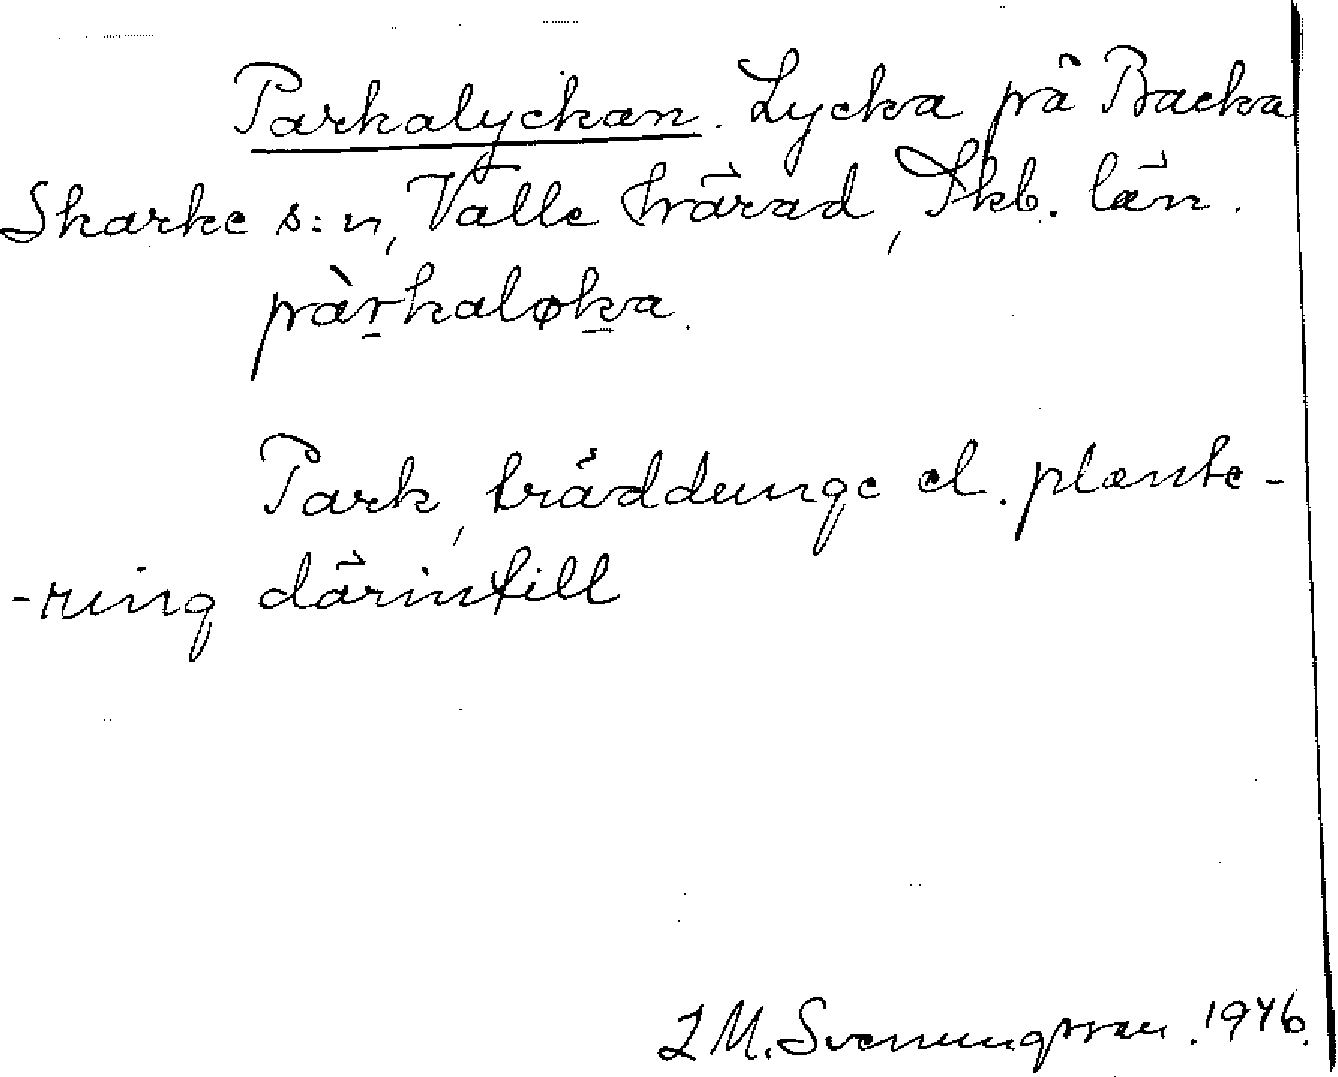 Parkalyckan. Lycka på Backa
Skarke s:n, Valle härad, Skb. län.
pàrkaløka.
Park, träddunge el. plante-
-ring därintill
I M. Svenungsson. 1946.